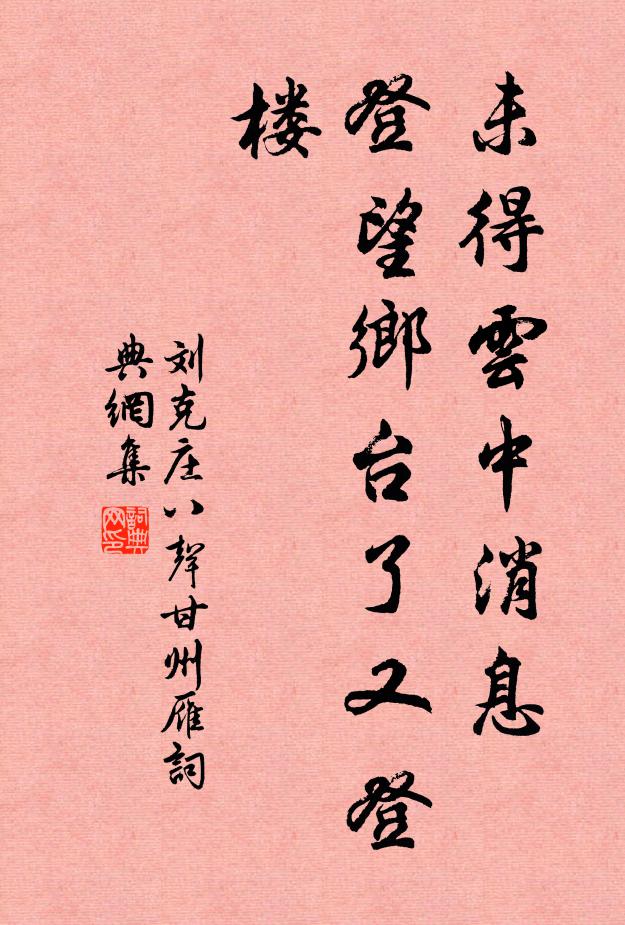 未得雲中消息
登望鄉台了又登
楼
刘克庄八聲甘州雁詞
典網集
詞典
网印